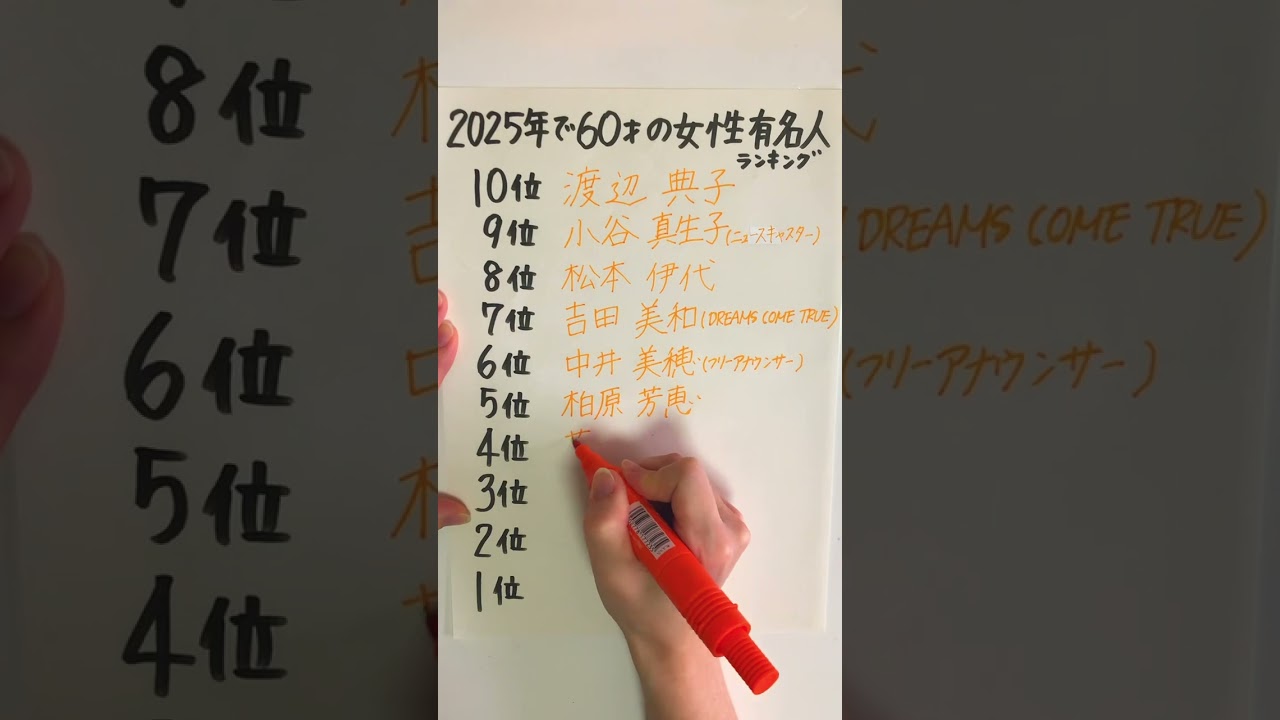 2025年で60才の女性有名人
ランキング
10位 渡辺 典子
9位 小谷 真生子(ニュースキャスター)
8位 松本 伊代
7位 吉田 美和(DREAMS COME TRUE)
6位 中井 美穂(フリーアナウンサー)
5位 柏原 芳恵
4位
3位
2位
1位